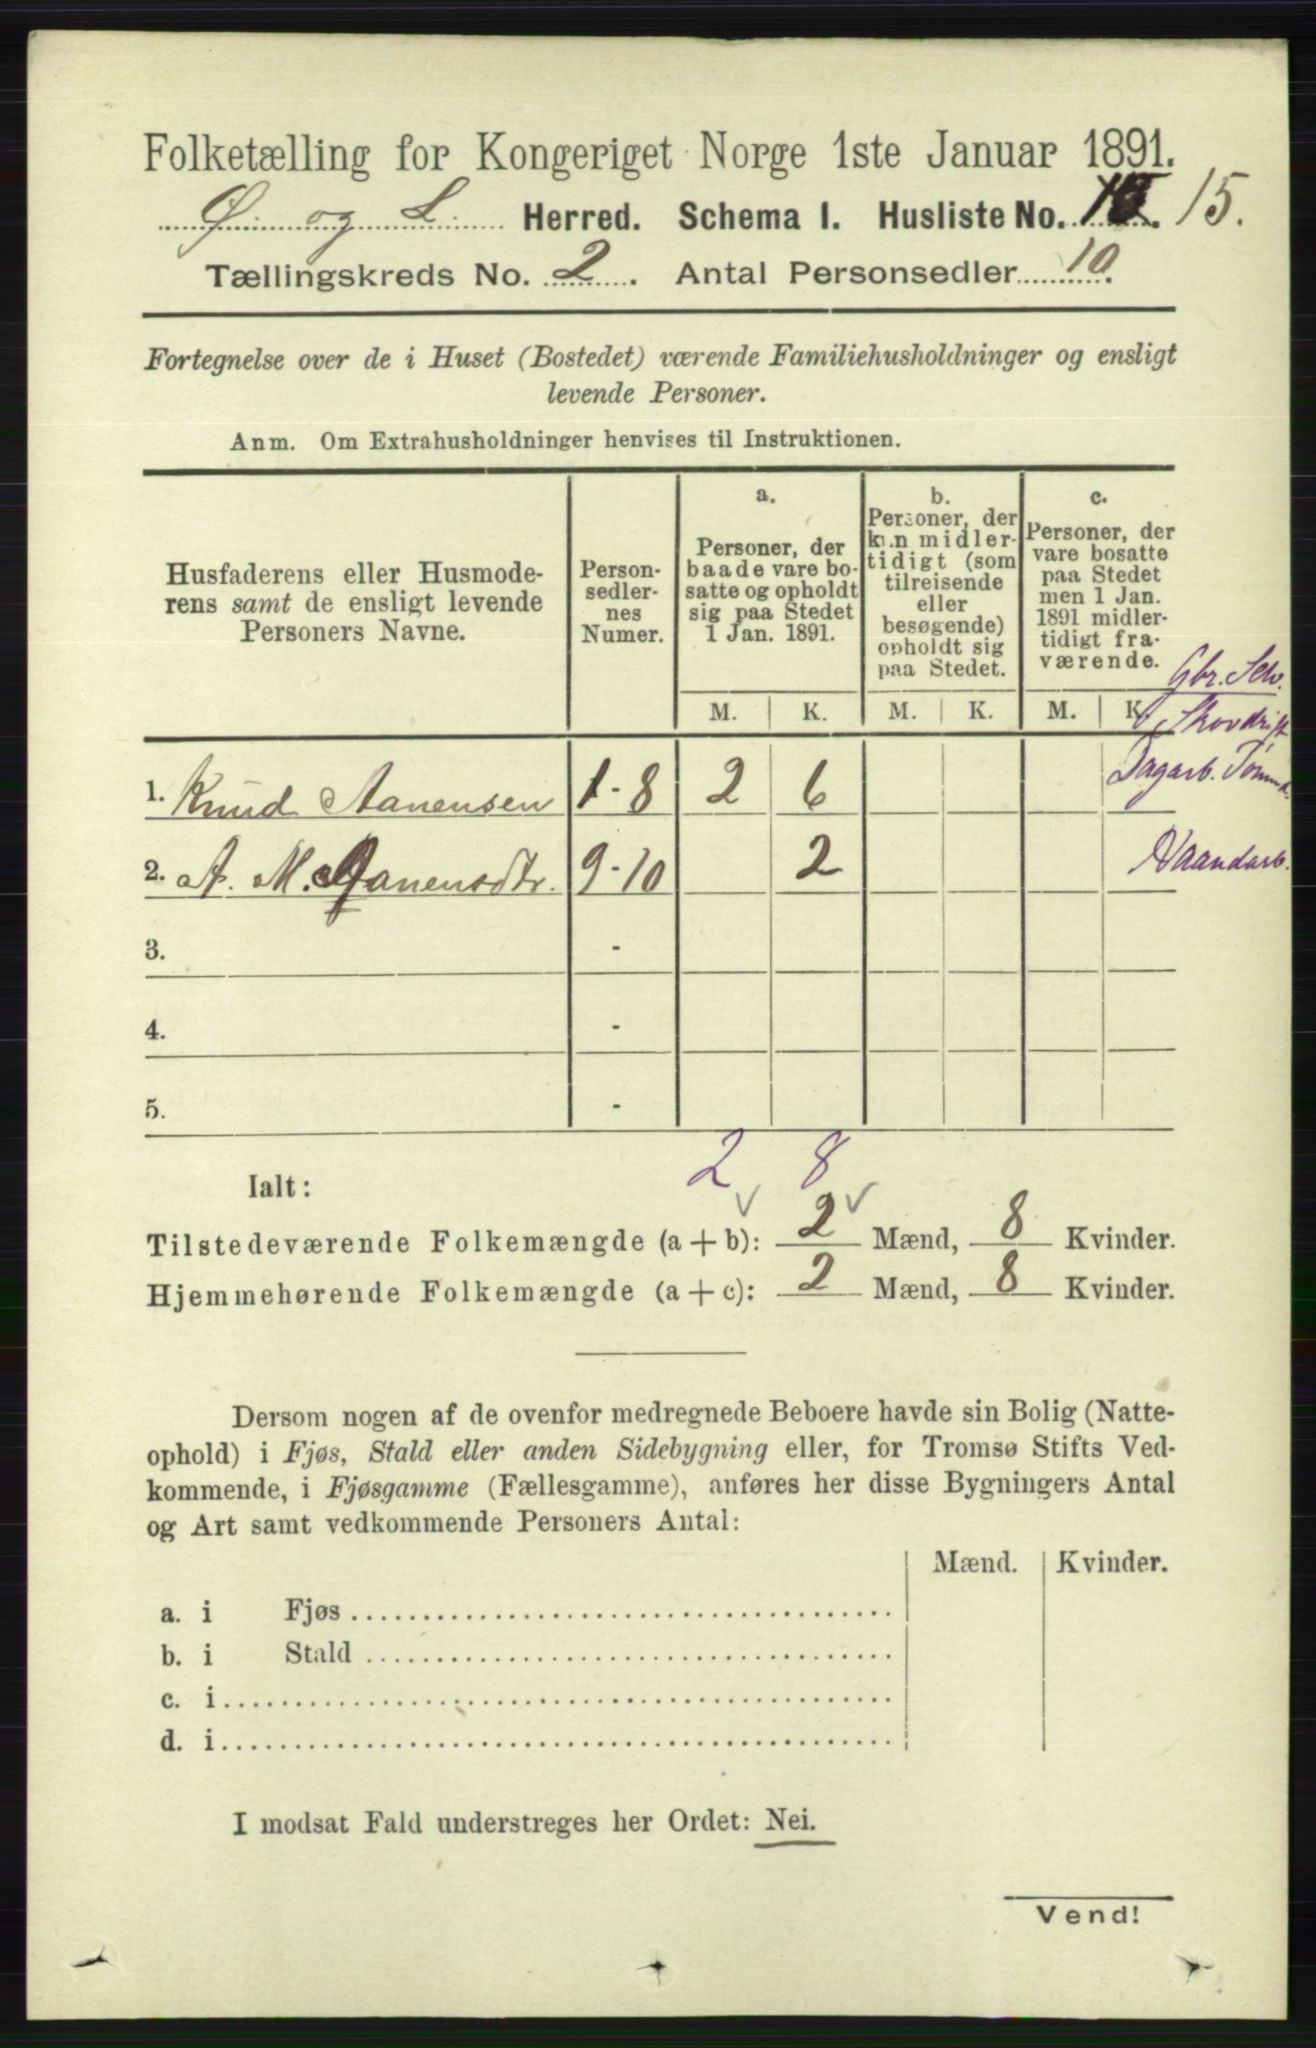 Folketælling for Kongeriget Norge 1ste Januar 1891.
Ø. og L. Herred. Schema I. Husliste No. 15.
Tællingskreds No. 2. Antal Personsedler 10.
Fortegnelse over de i Huset (Bostedet) værende Familiehusholdninger og ensligt
levende Personer.
Anm. Om Extrahusholdninger henvises til Instruktionen.
Husfaderens eller Husmode-
rens samt de ensligt levende
Personers Navne.
Person-
sedler-
nes
Numer.
a.
Personer, der
baade vare bo-
satte og opholdt
sig paa Stedet
1 Jan. 1891.
b.
Personer, der
kun midler-
tidigt (som
tilreisende
eller
besøgende)
opholdt sig
paa Stedet.
c.
Personer, der
vare bosatte
paa Stedet
men 1 Jan.
1891 midler-
tidigt fra-
værende.
Gbr. Selv.
Skovdrift
M. K. M. K. M. K.
1. Knud Aanensen 1-8 2 6 Dagarb.
2. A. M. Aanensdtr. 9-10 2 Haandarb.
3. -
4. -
5. -
2 8
Ialt:
Tilstedeværende Folkemængde (a + b): 2 Mænd, 8 Kvinder.
Hjemmehørende Folkemængde (a + c): 2 Mænd, 8 Kvinder.
Dersom nogen af de ovenfor medregnede Beboere havde sin Bolig (Natte-
ophold) i Fjøs, Stald eller anden Sidebygning eller, for Tromsø Stifts Ved-
kommende, i Fjøsgamme (Fællesgamme), anføres her disse Bygningers Antal
og Art samt vedkommende Personers Antal:
Mænd. Kvinder.
a. i Fjøs
b. i Stald
c. i
d. i
I modsat Fald understreges her Ordet: Nei.
Vend!